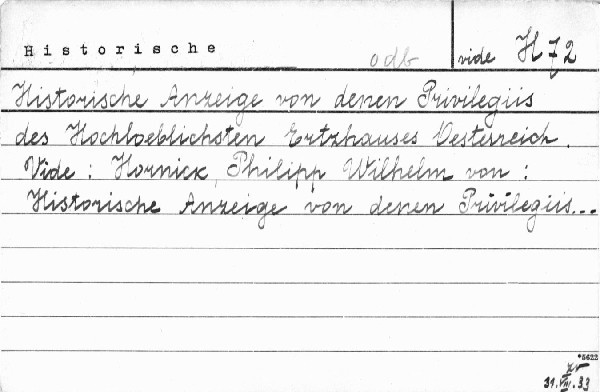 Historische
odb
vide H 72
Historische Anzeige von denen Privilegiis
des Hochloeblichsten Ertzhauses Oesterreich.
Vide : Hornick, Philipp Wilhelm von :
Historische Anzeige von denen Privilegiis...
*5622
31.VIII.33